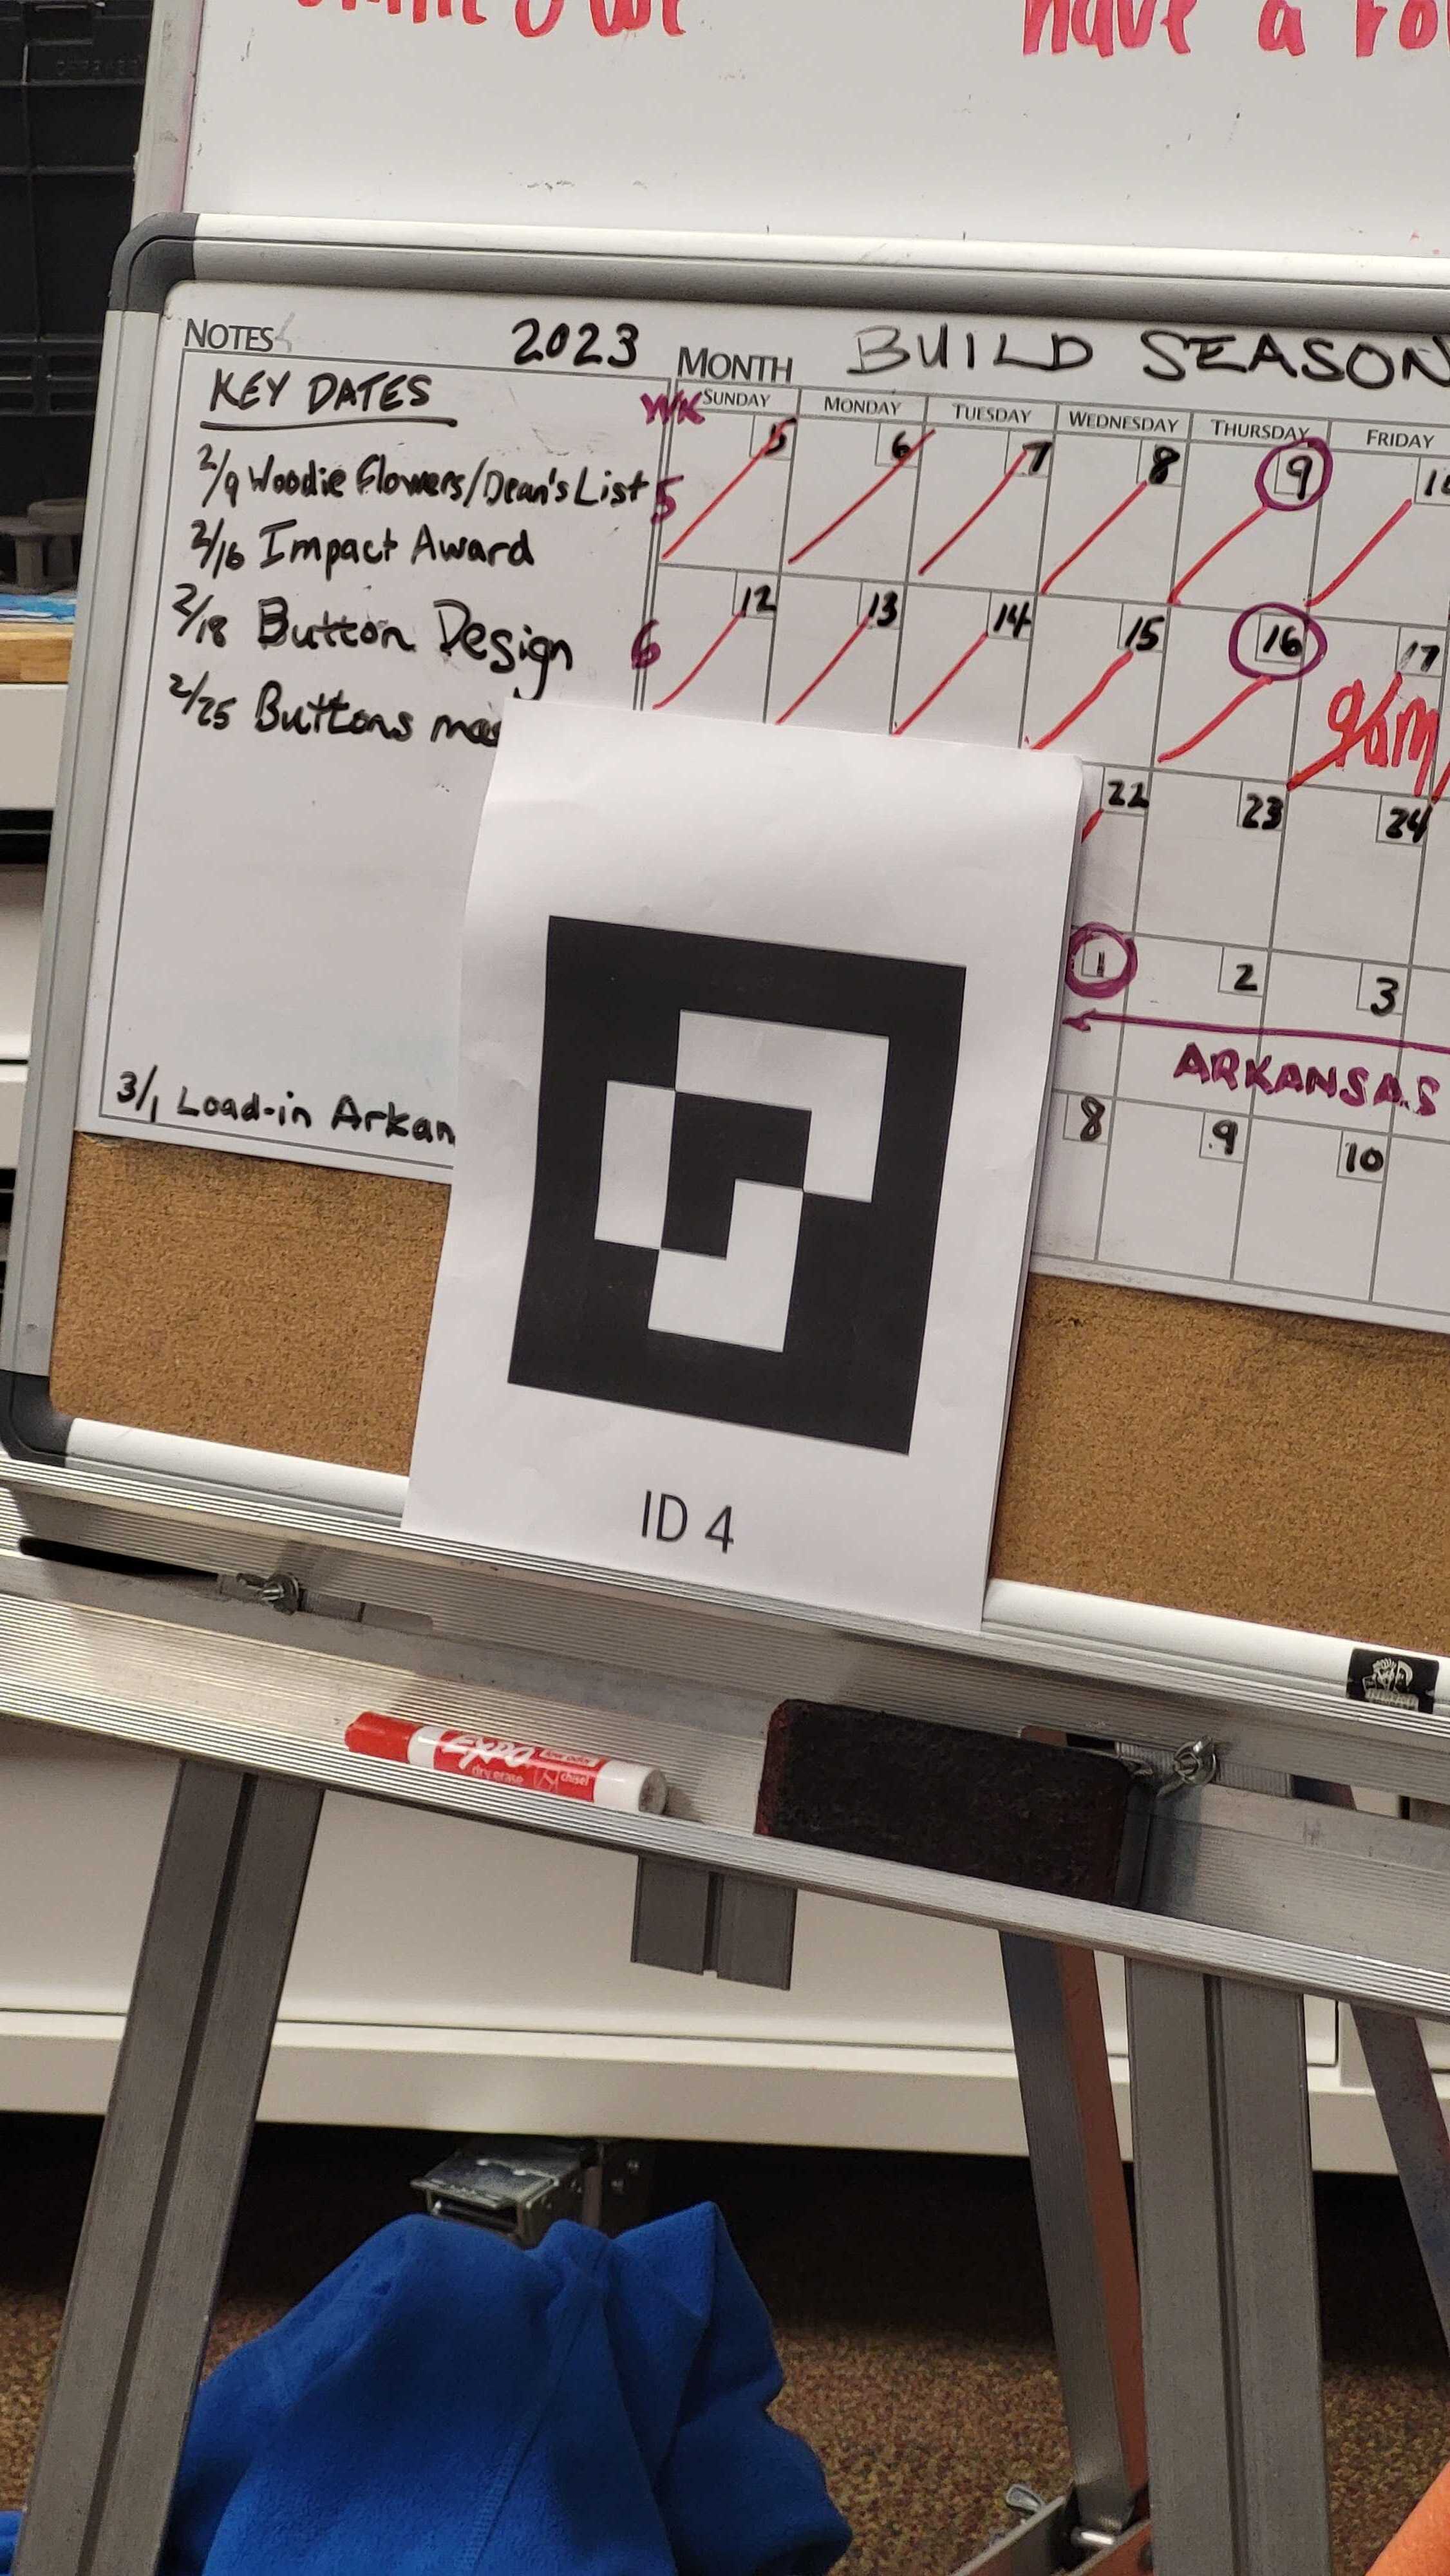 have a
NOTES 2023 MONTH BUILD SEASON
KEY DATES
2/9 Woodie Flowers/Dean's List
2/16 Impact Award
2/18 Button Design
2/25 Buttons
3/1 Load-in Arkan
WK SUNDAY MONDAY TUESDAY WEDNESDAY THURSDAY FRIDAY
5 5 6 7 8 9
6 12 13 14 15 16 17
22 23 24
1 2 3
ARKANSAS
8 9 10
ID 4
EXPO
dry erase
chisel